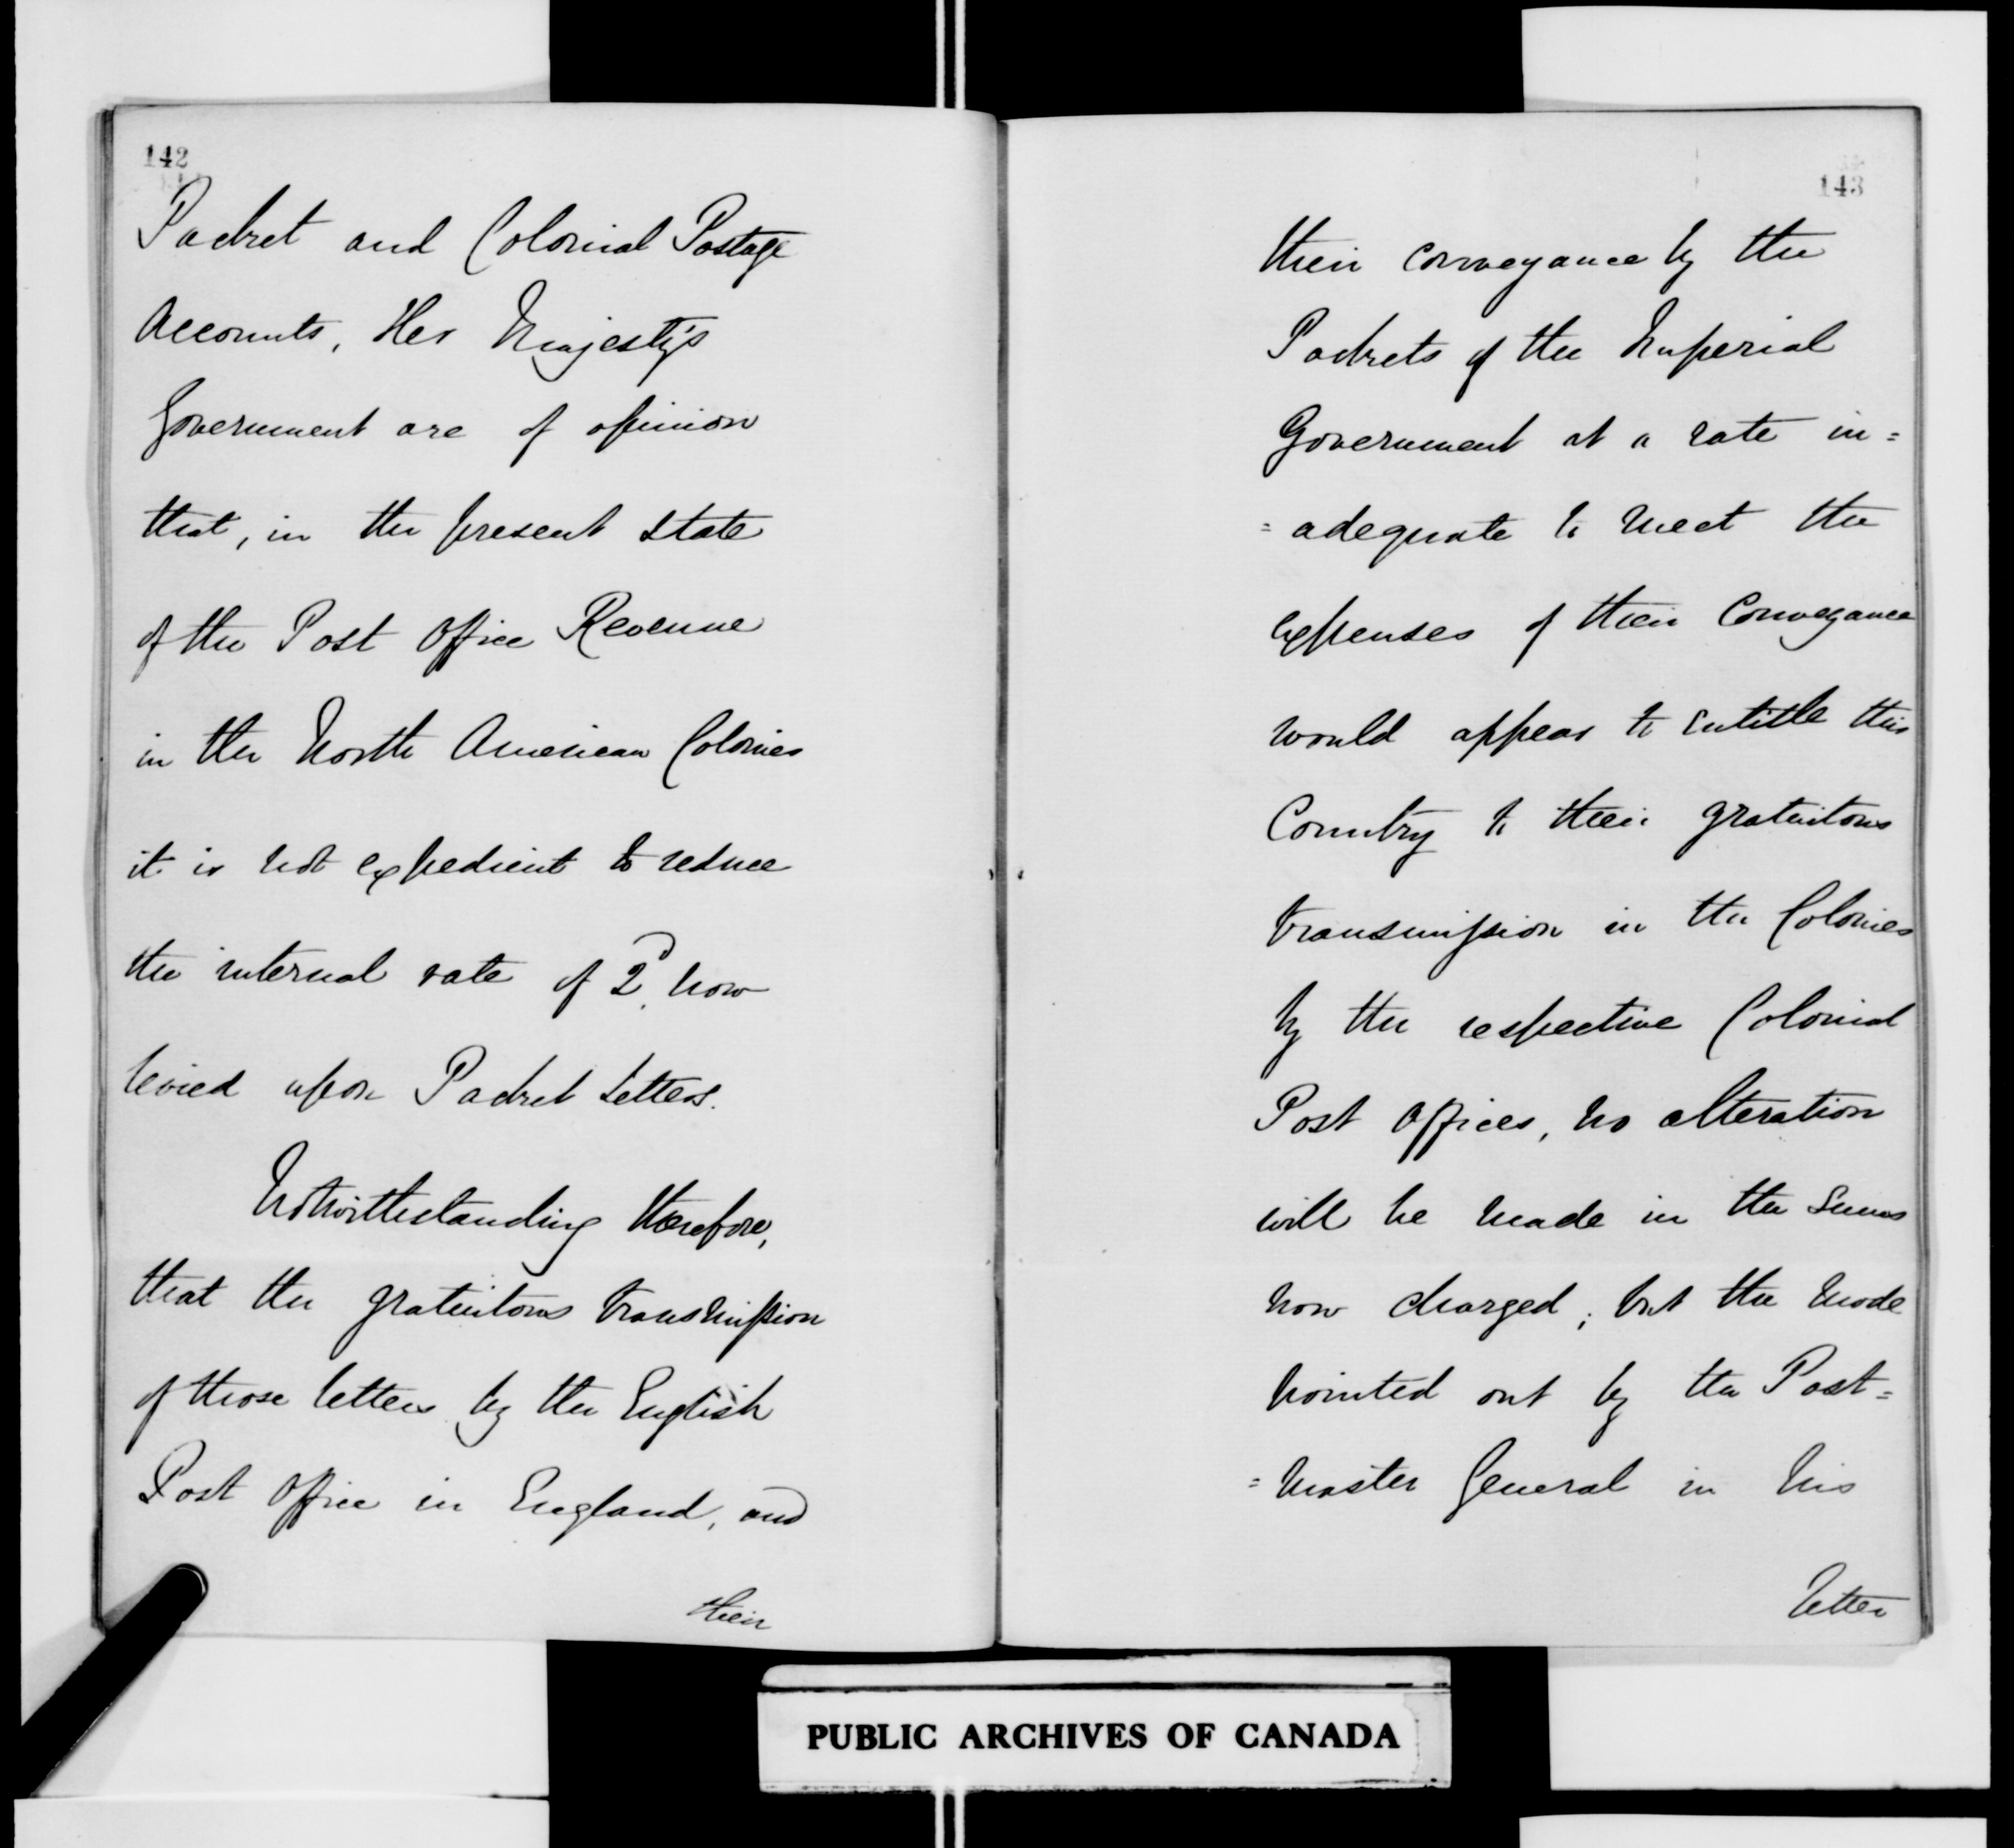 142
Packet and Colonial Postage
Accounts, Her Majesty's
Government are of opinion
that, in the present state
of the Post Office Revenue
in the North American Colonies
it is not expedient to reduce
the internal rate of 2d. now
levied upon Packet Letters.
Notwithstanding therefore,
that the gratuitous transmission
of those letters by the English
Post Office in England, and
their
143
their conveyance by the
Packets of the Imperial
Government at a rate in=
=adequate to meet the
expenses of their Conveyance
would appear to entitle this
Country to their gratuitous
transmission in the Colonies
by the respective Colonial
Post Offices, no alteration
will be made in the Sums
now charged; but the mode
pointed out by the Post=
=master General in his
letter
PUBLIC ARCHIVES OF CANADA